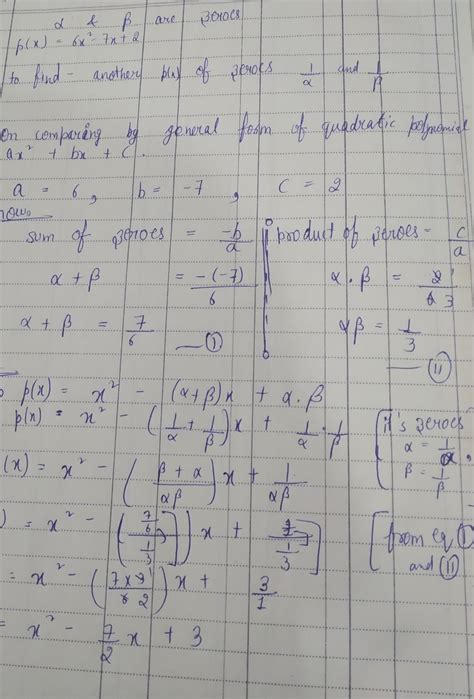 α & β are zeroes
p(x) = 6x² - 7x + 2
to find - another p(x) of zeroes 1/α and 1/β
on comparing by general form of quadratic polynomial
ax² + bx + c.
a = 6, b = -7, c = 2
now.
sum of zeroes = -b/a
α + β = -(-7)/6
α + β = 7/6 — (I)
product of zeroes - c/a
α . β = 2/6 3
αβ = 1/3
— (II)
p(x) = x² - (α+β)x + α . β
p(x) = x² - (1/α + 1/β)x + 1/α . 1/β
[it's zeroes
α = 1/α,
β = 1/β
(x) = x² - (β + α / αβ)x + 1/αβ
) = x² - ((7/6)/(1/3))x + 1/(1/3)
[from eq (I)
and (II)]
= x² - (7×3/6 2)x + 3/1
= x² - 7/2 x + 3